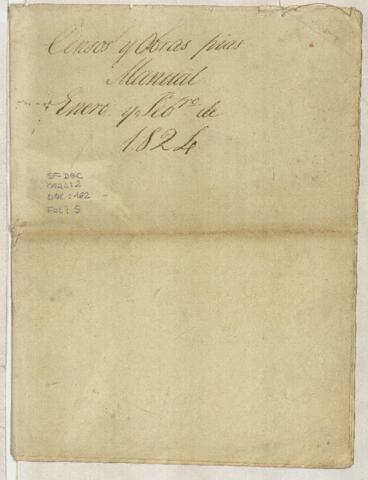 Censos y Obras pias
Manual
Enero y Feb.ro de
1824
SF-DOC
DOC: 162
FOL: 5